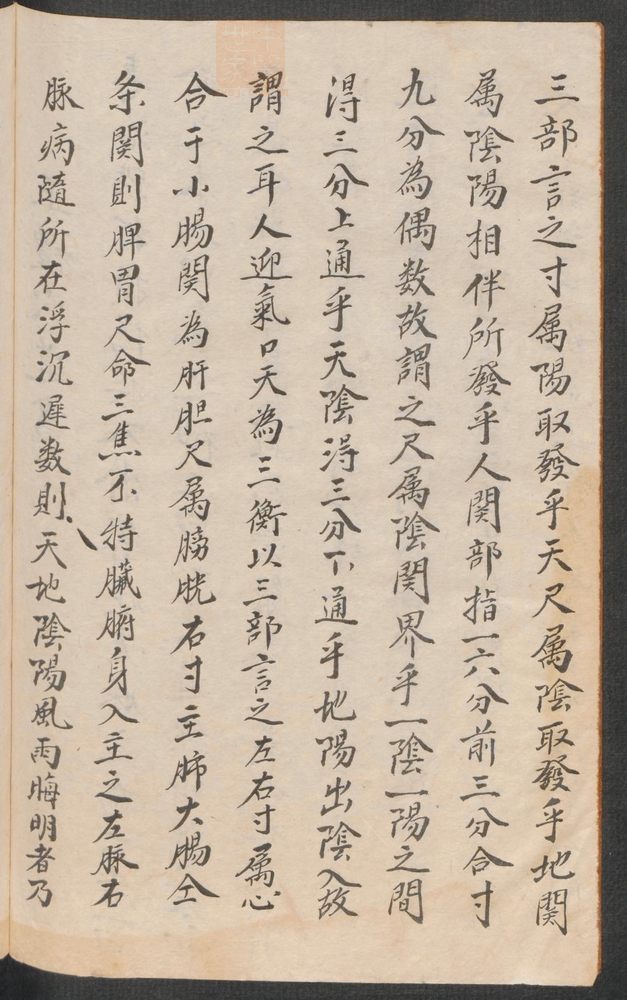 三部言之寸属陽取發乎天尺属陰取發乎地関
属陰陽相伴所發乎人関部指一六分前三分合寸
九分為偶数故謂之尺属陰関界乎一陰一陽之間
淂三分上通乎天陰淂三分下通乎地陽出陰入故
謂之耳人迎氣口天為三衡以三部言之左右寸属心
合于小腸関為肝胆尺属膀胱右寸主肺大腸仝
条関則脾胃尺命三焦不特臟腑身入主之左脉右
脉病隨所在浮沉遲数則天地陰陽風雨晦明者乃